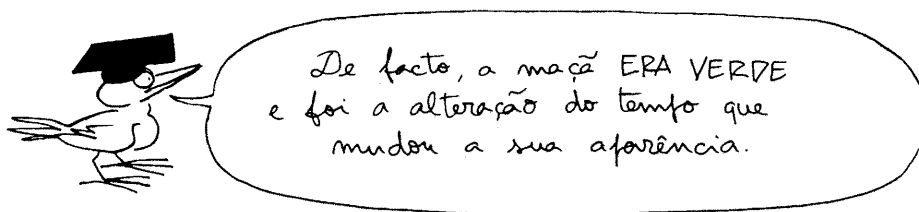 De facto, a maçã ERA VERDE
e foi a alteração do tempo que
mudou a sua aparência.